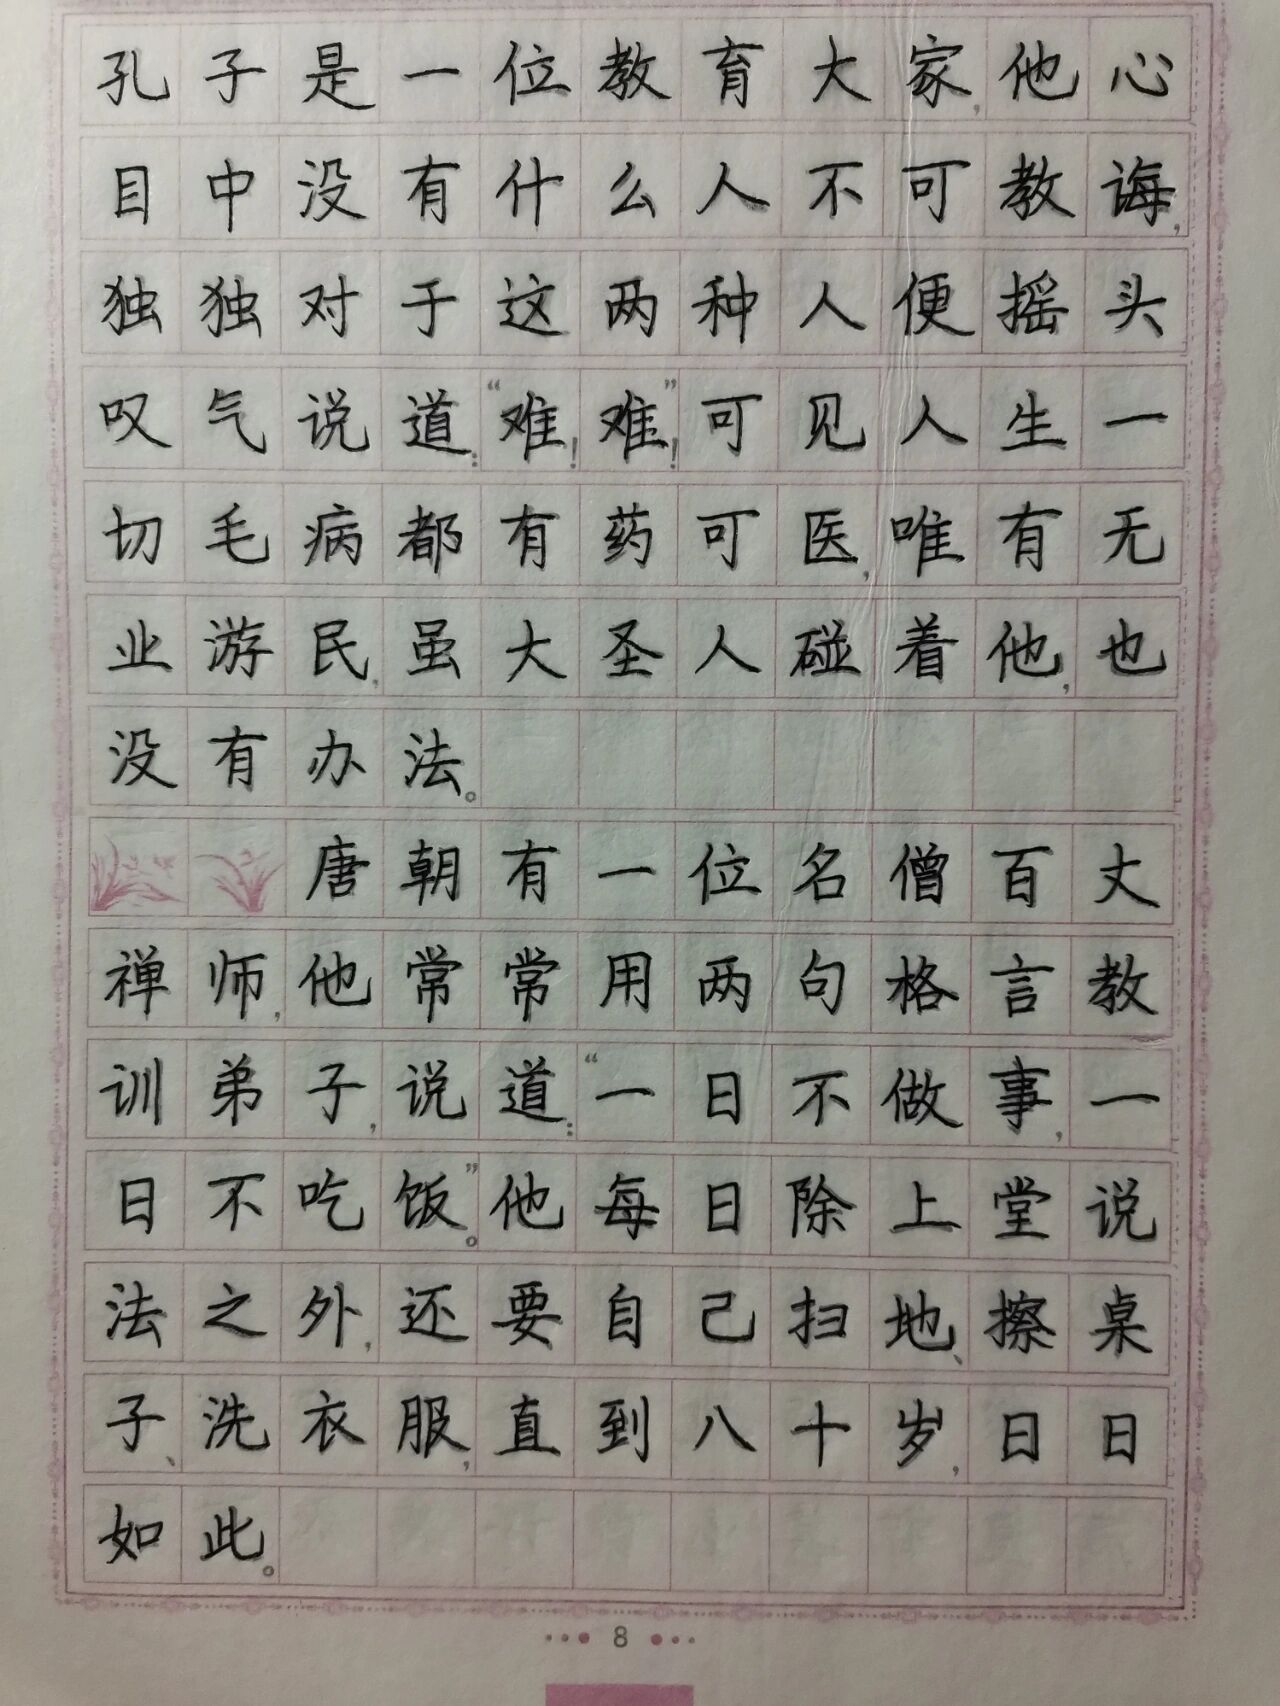 孔子是一位教育大家,他心
目中没有什么人不可教诲,
独独对于这两种人便摇头
叹气说道:“难!难!”可见人生一
切毛病都有药可医,唯有无
业游民,虽大圣人碰着他,也
没有办法。
唐朝有一位名僧百丈
禅师,他常常用两句格言教
训弟子,说道:“一日不做事,一
日不吃饭。”他每日除上堂说
法之外,还要自己扫地、擦桌
子、洗衣服,直到八十岁,日日
如此。
8